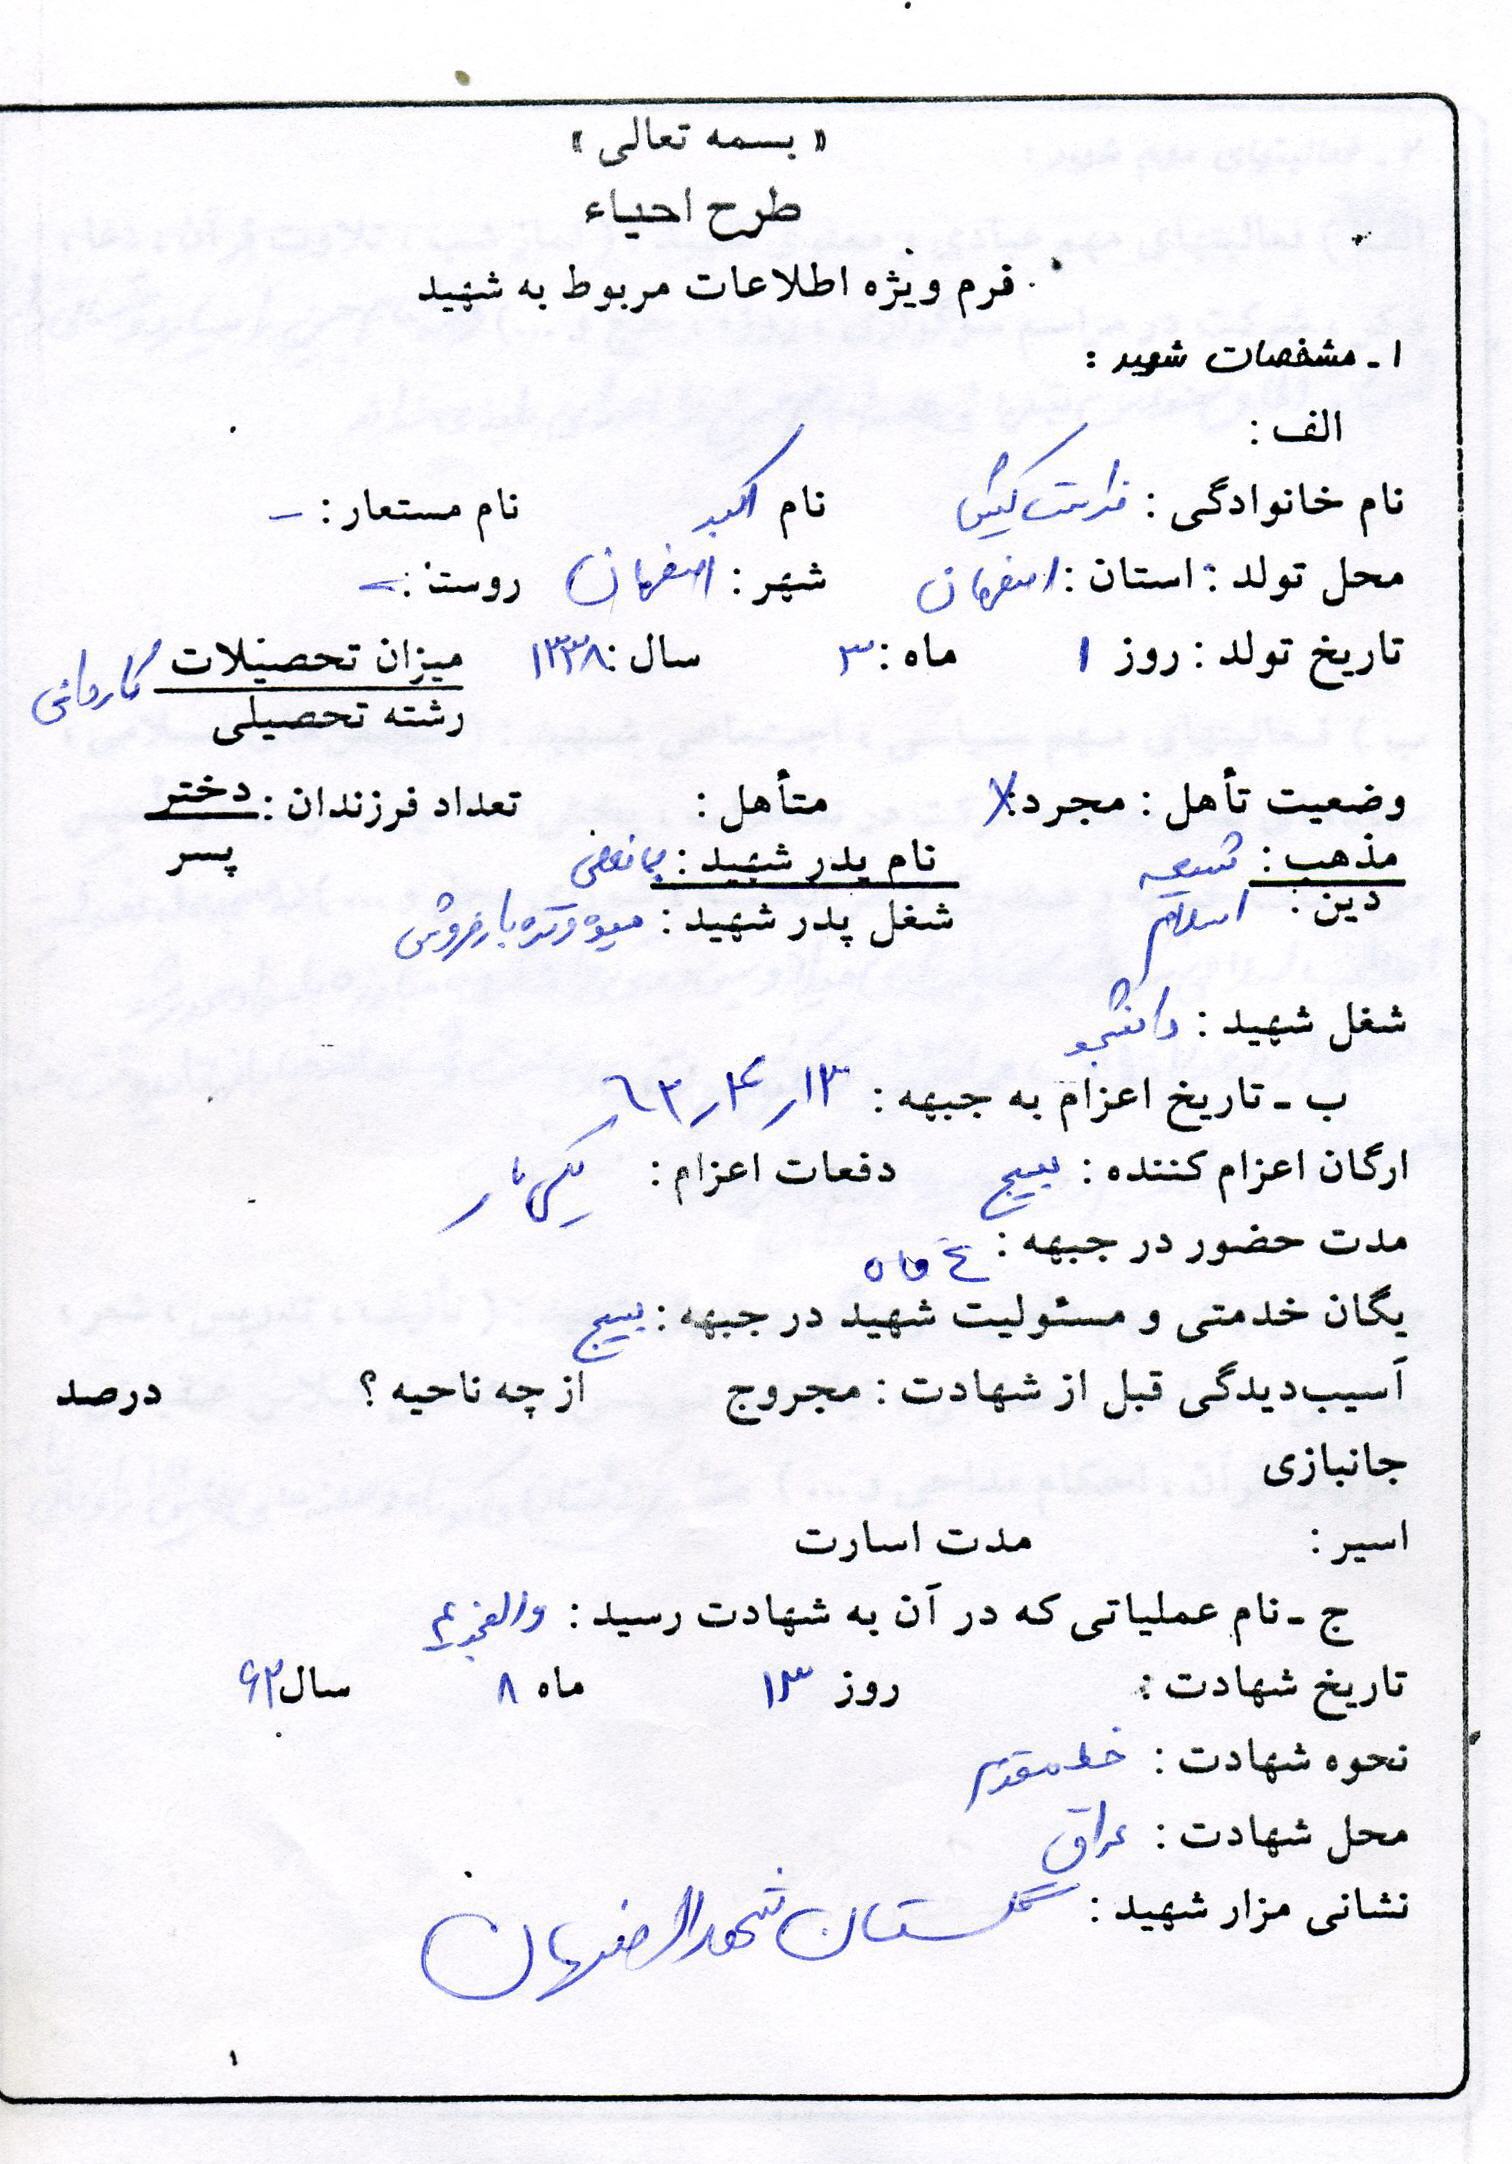 « بسمه تعالی »
طرح احیاء
فرم ویژه اطلاعات مربوط به شهید
۱ـ مشخصات شهید :
الف :
نام خانوادگی : نام اکبر نام مستعار : –
محل تولد : استان : اصفهان شهر : اصفهان روستا : –
تاریخ تولد : روز ۱ ماه : ۳ سال : ۱۳۳۸ میزان تحصیلات کاردانی
رشته تحصیلی
وضعیت تأهل : مجرد : x متأهل : تعداد فرزندان : دختر
پسر
مذهب : شیعه نام پدر شهید :
دین : اسلام شغل پدر شهید : میوه و تره بار فروش
شغل شهید : دانشجو
ب ـ تاریخ اعزام به جبهه : ۱۳ر۴ر۶۲
ارگان اعزام کننده : بسیج دفعات اعزام : یکی بار
مدت حضور در جبهه : ٤ ماه
یگان خدمتی و مسئولیت شهید در جبهه : بسیج
آسیب‌دیدگی قبل از شهادت : مجروح از چه ناحیه ؟ درصد
جانبازی
اسیر : مدت اسارت
ج ـ نام عملیاتی که در آن به شهادت رسید : والفجر ۴
تاریخ شهادت : روز ۱۳ ماه ۸ سال ۶۲
نحوه شهادت : خط مقدم
محل شهادت : عراق
نشانی مزار شهید : گلستان شهدا اصفهان
۱